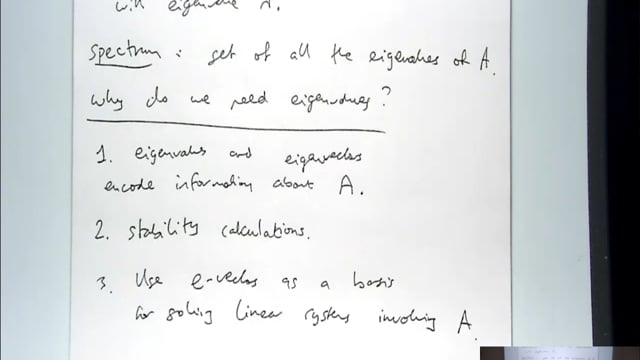 with eigenvalue A.
spectrum : set of all the eigenvalues of A.
Why do we need eigenvalues?
1. eigenvalues and eigenvectors
encode information about A.
2. stability calculations.
3. Use e-vectors as a basis
for solving linear systems involving A.